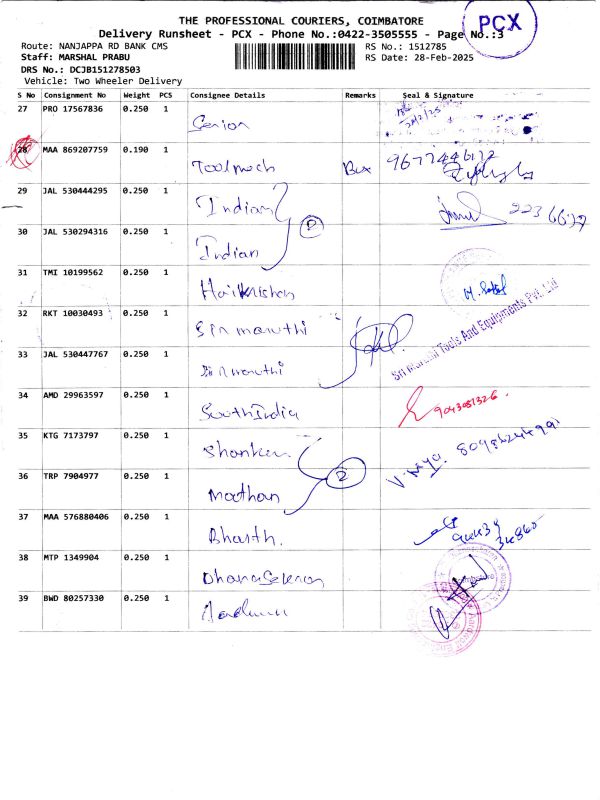 THE PROFESSIONAL COURIERS, COIMBATORE
PCX
Delivery Runsheet - PCX - Phone No.:0422-3505555 - Page No.:3
Route: NANJAPPA RD BANK CMS RS No.: 1512785
Staff: MARSHAL PRABU RS Date: 28-Feb-2025
DRS No.: DCJB151278503
Vehicle: Two Wheeler Delivery
S No Consignment No Weight PCS Consignee Details Remarks Seal & Signature
27 PRO 17567836 0.250 1 Senior
28 MAA 869207759 0.190 1 Toolmech Box
29 JAL 530444295 0.250 1 Indian
30 JAL 530294316 0.250 1 Indian
31 TMI 10199562 0.250 1
32 RKT 10030493 0.250 1 Sri maruthi
Sri Maruthi Tools And Equipments Pvt. Ltd
33 JAL 530447767 0.250 1 Sri maruthi
34 AMD 29963597 0.250 1 South India 9043081326
35 KTG 7173797 0.250 1
36 TRP 7904977 0.250 1 Madhan 2
37 MAA 576880406 0.250 1
38 MTP 1349904 0.250 1
39 BWD 80257330 0.250 1